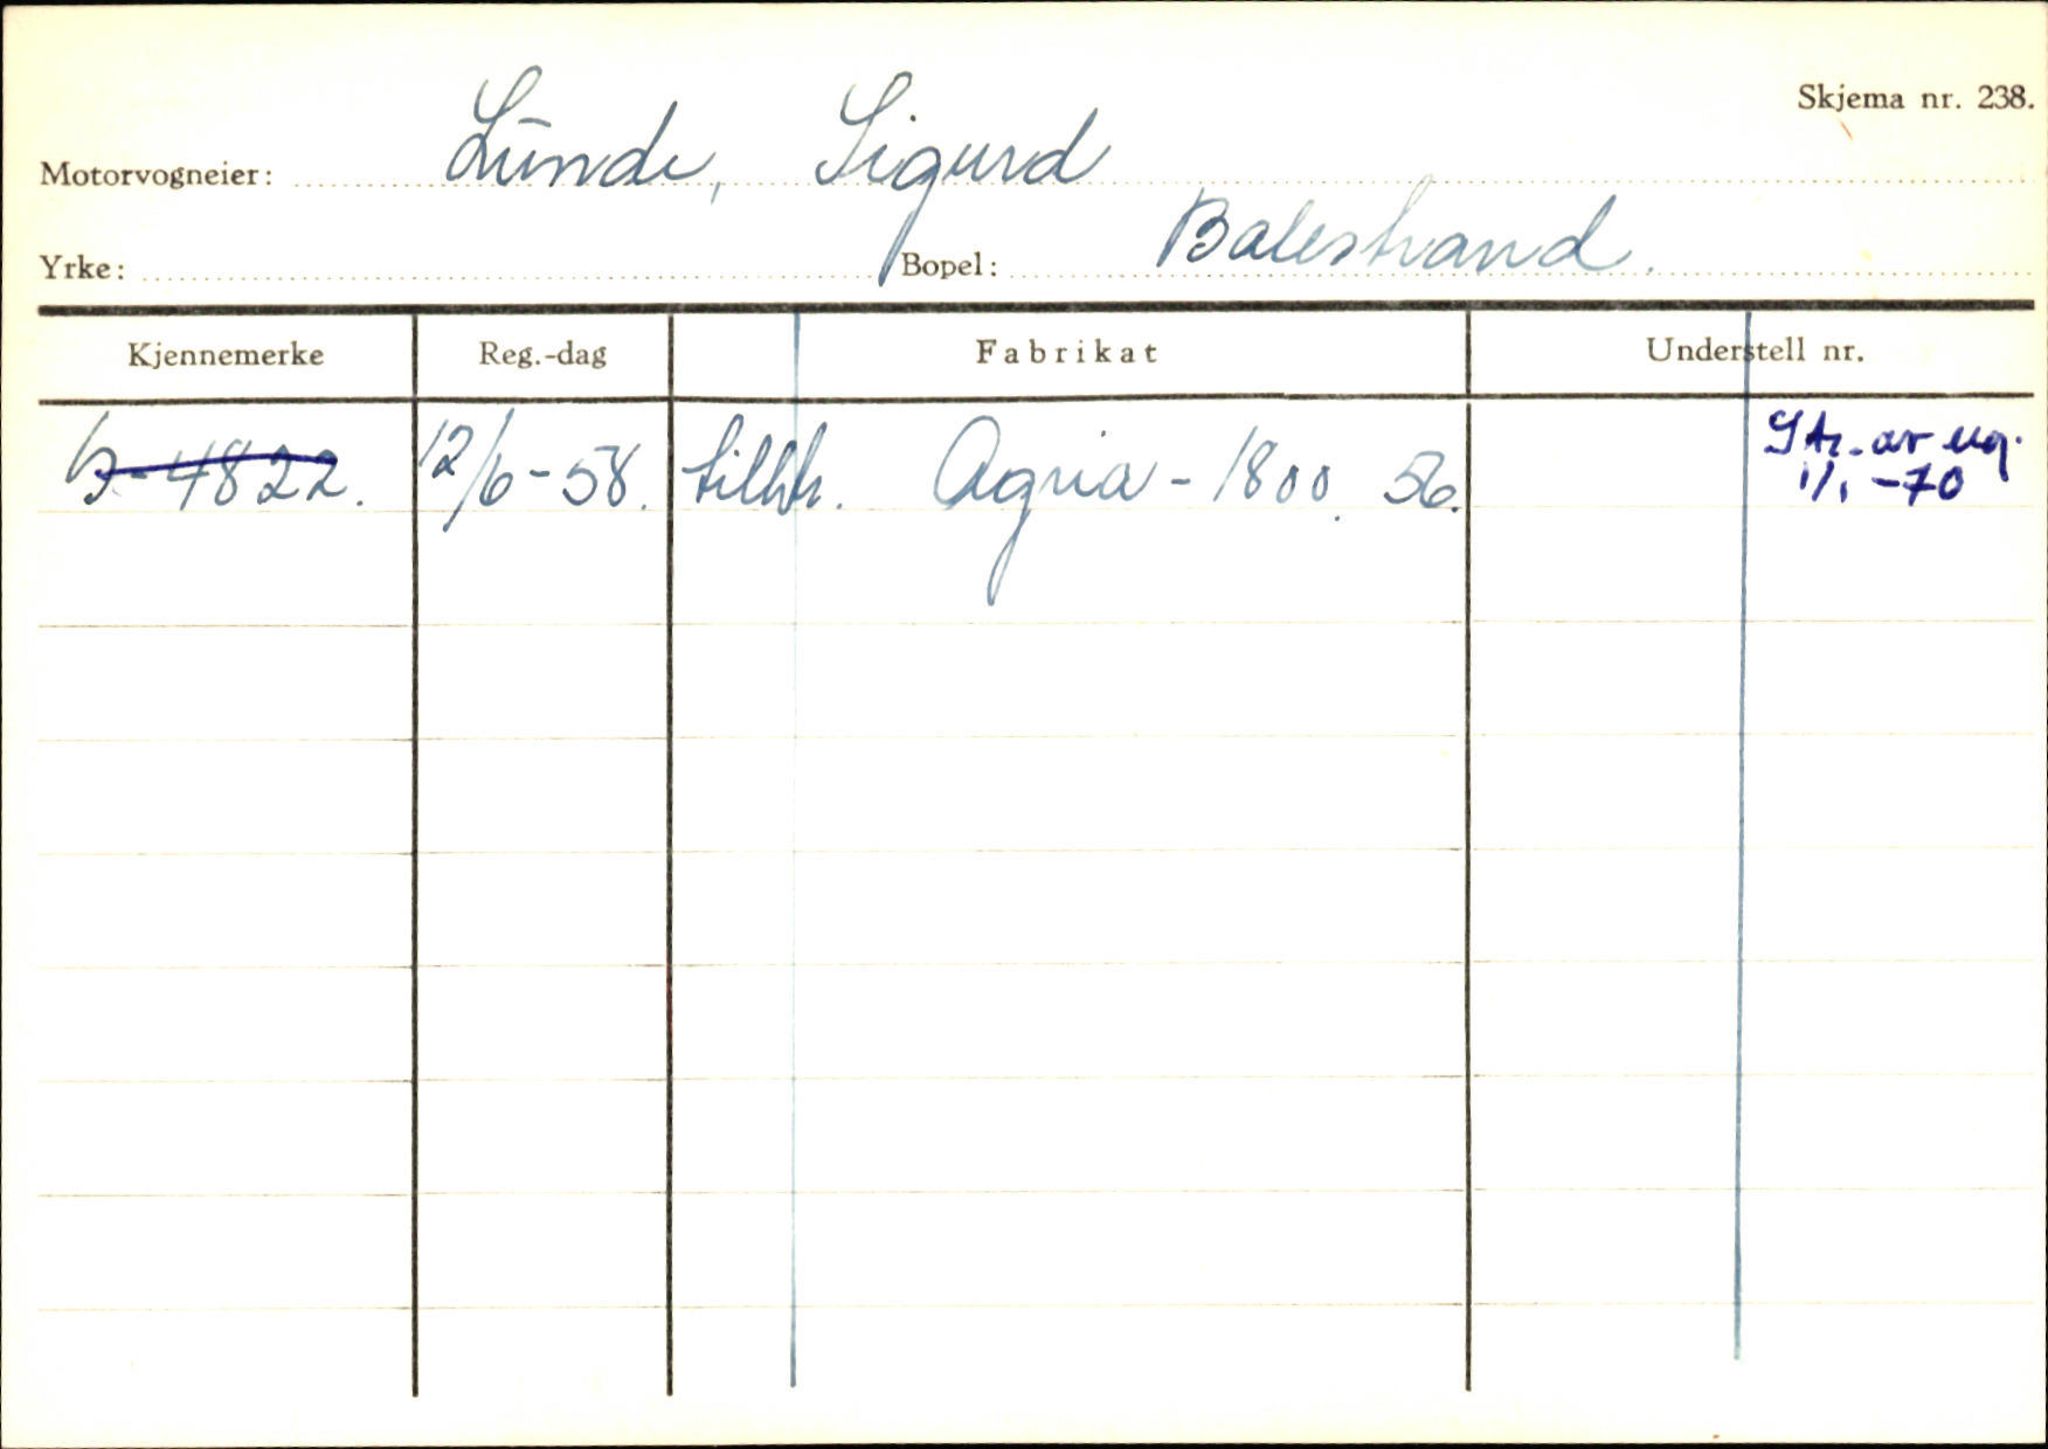 Skjema nr. 238.
Motorvogneier: Lunde, Sigurd
Yrke: Bopel: Balestrand.
Kjennemerke Reg.-dag Fabrikat Understell nr.
4822. 12/6-58. tilhh. Agria - 1800. 56. Str. av reg.
1/1 -70